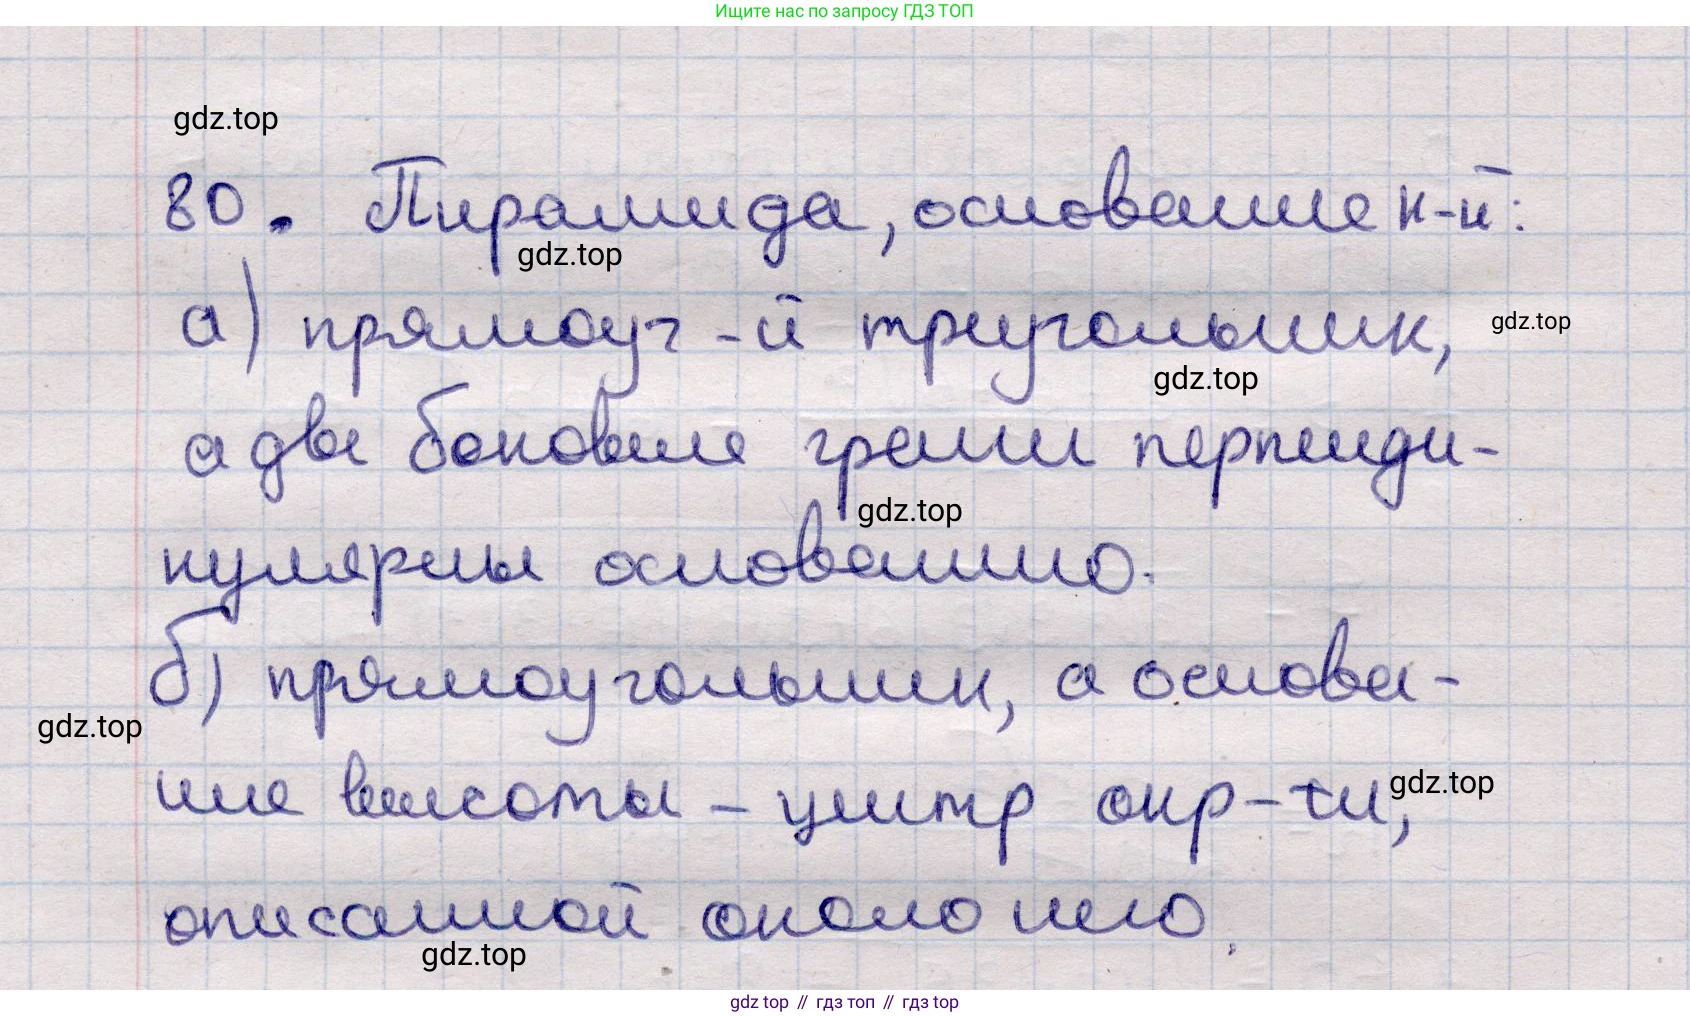 Ищите нас по запросу ГДЗ ТОП
gdz.top
80. Пирамида, основание к-й:
gdz.top
а) прямоуг-й треугольник,
gdz.top
gdz.top
а две боковые грани перпенди-
gdz.top
кулярны основанию.
б) прямоугольник, а основа-
gdz.top
ние высоты – центр окр-ти,
gdz.top
описанной около него.
gdz.top
gdz top // гдз топ // гдз top